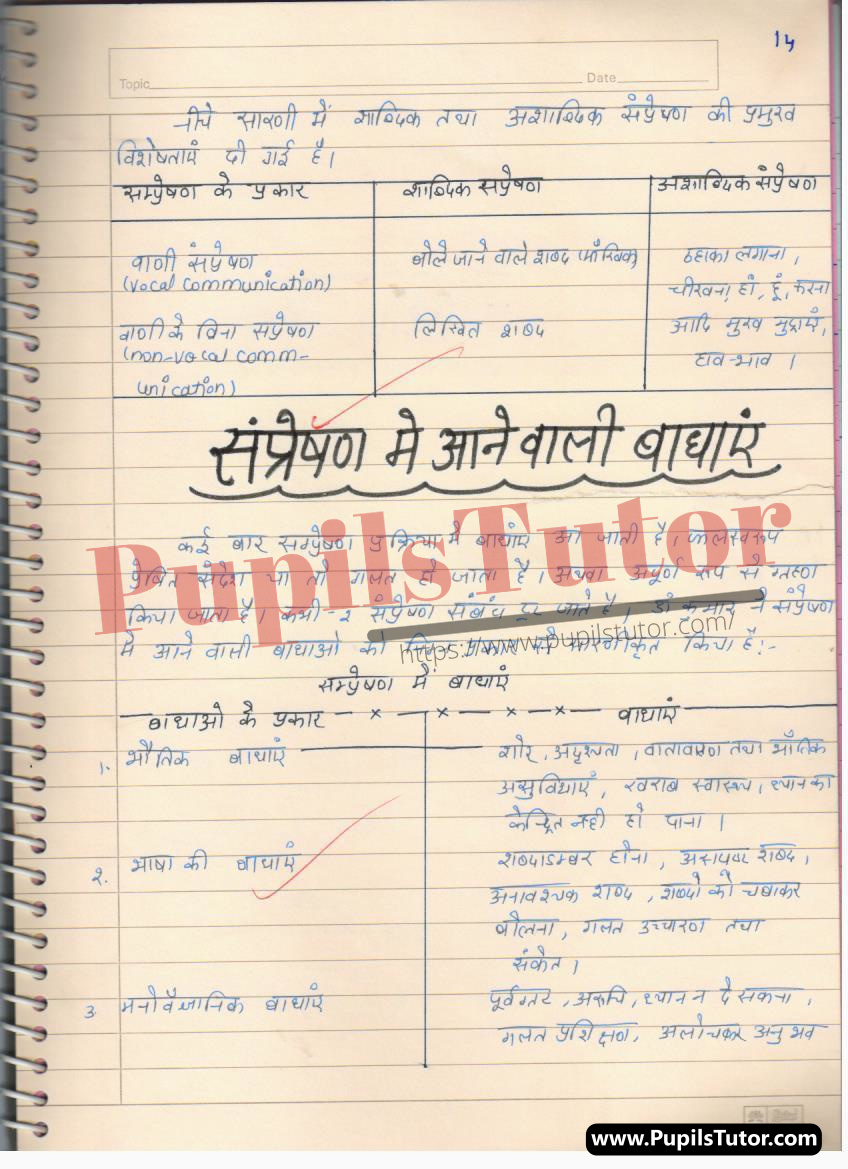 14
Topic
Date
नीचे सारणी में शाब्दिक तथा अशाब्दिक संप्रेषण की प्रमुख
विशेषताएं दी गई है।
सम्प्रेषण के प्रकार शाब्दिक संप्रेषण अशाब्दिक संप्रेषण
वाणी संप्रेषण बोले जाने वाले शब्द (मौखिक) ठहाका लगाना,
(vocal communication) चीखना, हाँ, हूं, करना
वाणी के बिना संप्रेषण लिखित शब्द आदि मुख मुद्राएं,
(non-vocal comm- हाव-भाव ।
unication)
संप्रेषण मे आने वाली बाधाएं
कई बार सम्प्रेषण प्रक्रिया में बाधाएं आ जाती है। फलस्वरूप
प्रेषित संदेश या तो गलत हो जाता है। अथवा अपूर्ण रूप से ग्रहण
किया जाता है। कभी-२ संप्रेषण संबंध टूट जाते है, डॉ कुमार ने संप्रेषण
में आने वाली बाधाओ को प्रकार से किया है:-
PupilsTutor
https://www.pupilstutor.com/
सम्प्रेषण में बाधाएं
बाधाओ के प्रकार —×—×—×—×— बाधाएं
1. भौतिक बाधाएं शोर, अदृश्यता, वातावरण तथा भौतिक
असुविधाएं, खराब स्वास्थ्य, ध्यान का
केन्द्रित नही हो पाना ।
२. भाषा की बाधाएं शब्दाडम्बर होना, शब्द,
अनावश्यक शब्द, शब्दो को चबाकर
बोलना, गलत उच्चारण तथा
संकेत ।
3. मनोवैज्ञानिक बाधाएं अरूचि, ध्यान न दे सकना,
गलत प्रशिक्षण, अनुभव
www.PupilsTutor.com